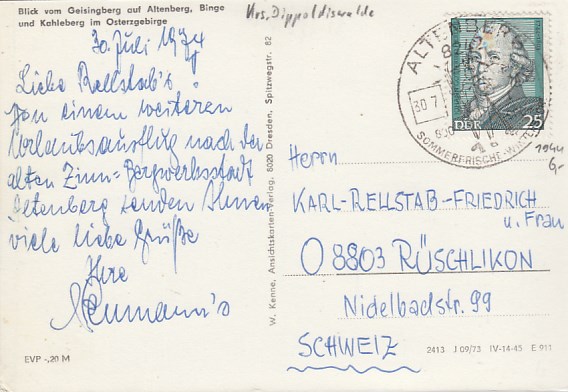 Blick vom Geisingberg auf Altenberg, Binge
und Kahleberg im Osterzgebirge
Krs. Dippoldiswalde
30. Juli 1974
Liebe Rellstab's!
Von einem weiteren
Urlaubsausflug nach der
alten Zinn-Bergwerksstadt
Altenberg senden Ihnen
viele liebe Grüße
Ihre
Neumann's
EVP -,20 M
W. Kenne, Ansichtskarten-Verlag, 8020 Dresden, Spitzwegstr. 82
ALTENBERG
82
30.7
930
SOMMERFRISCHE
DDR 25
1944
6,-
Herrn
KARL-RELLSTAB-FRIEDRICH
u. Frau
O 8803 RÜSCHLIKON
Nidelbadstr. 99
SCHWEIZ
2413 J 09/73 IV-14-45 E 911